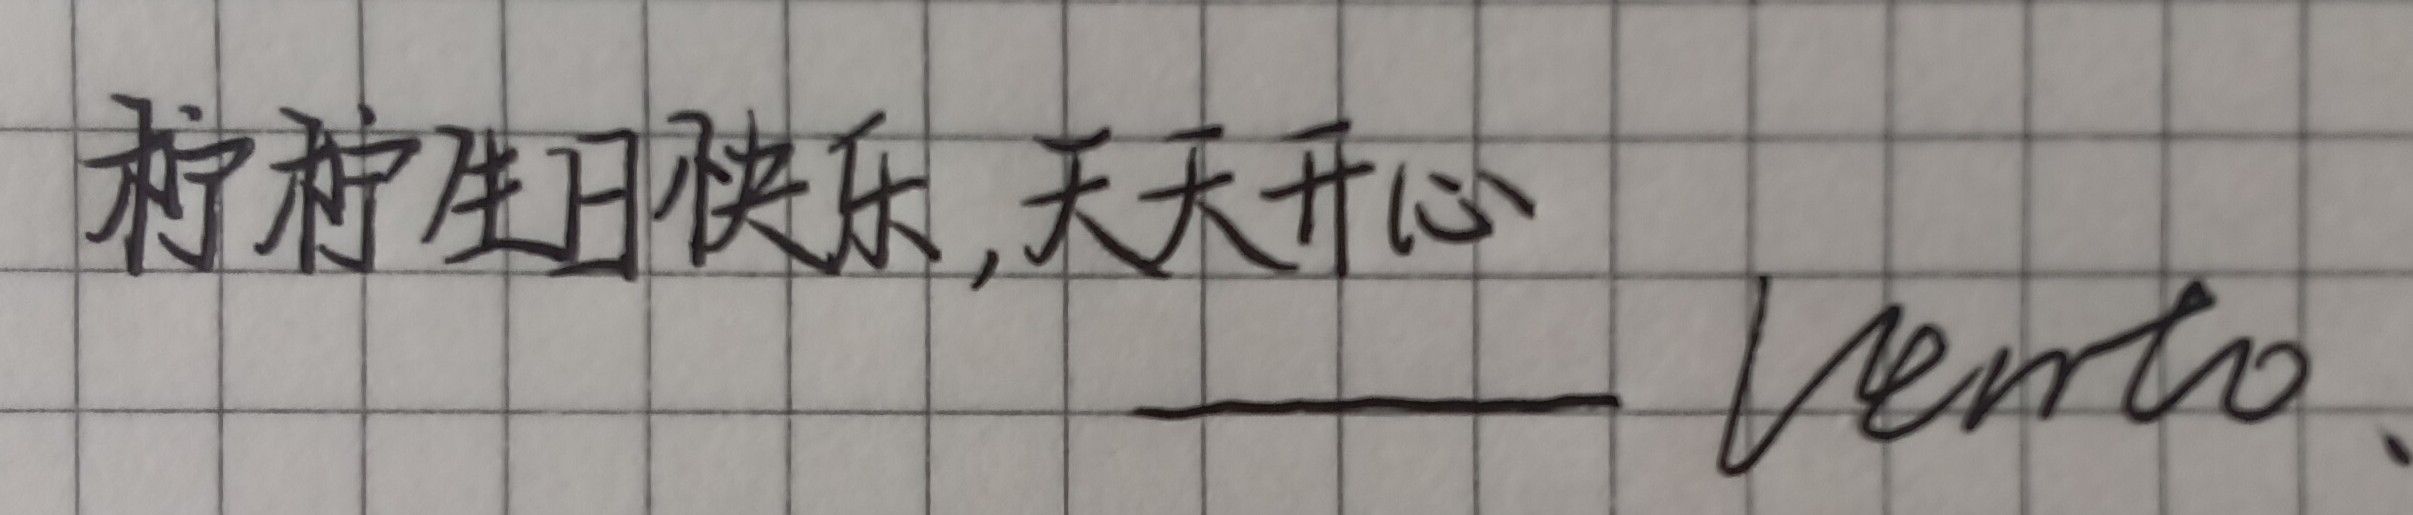 柠柠生日快乐,天天开心
—— Vento.